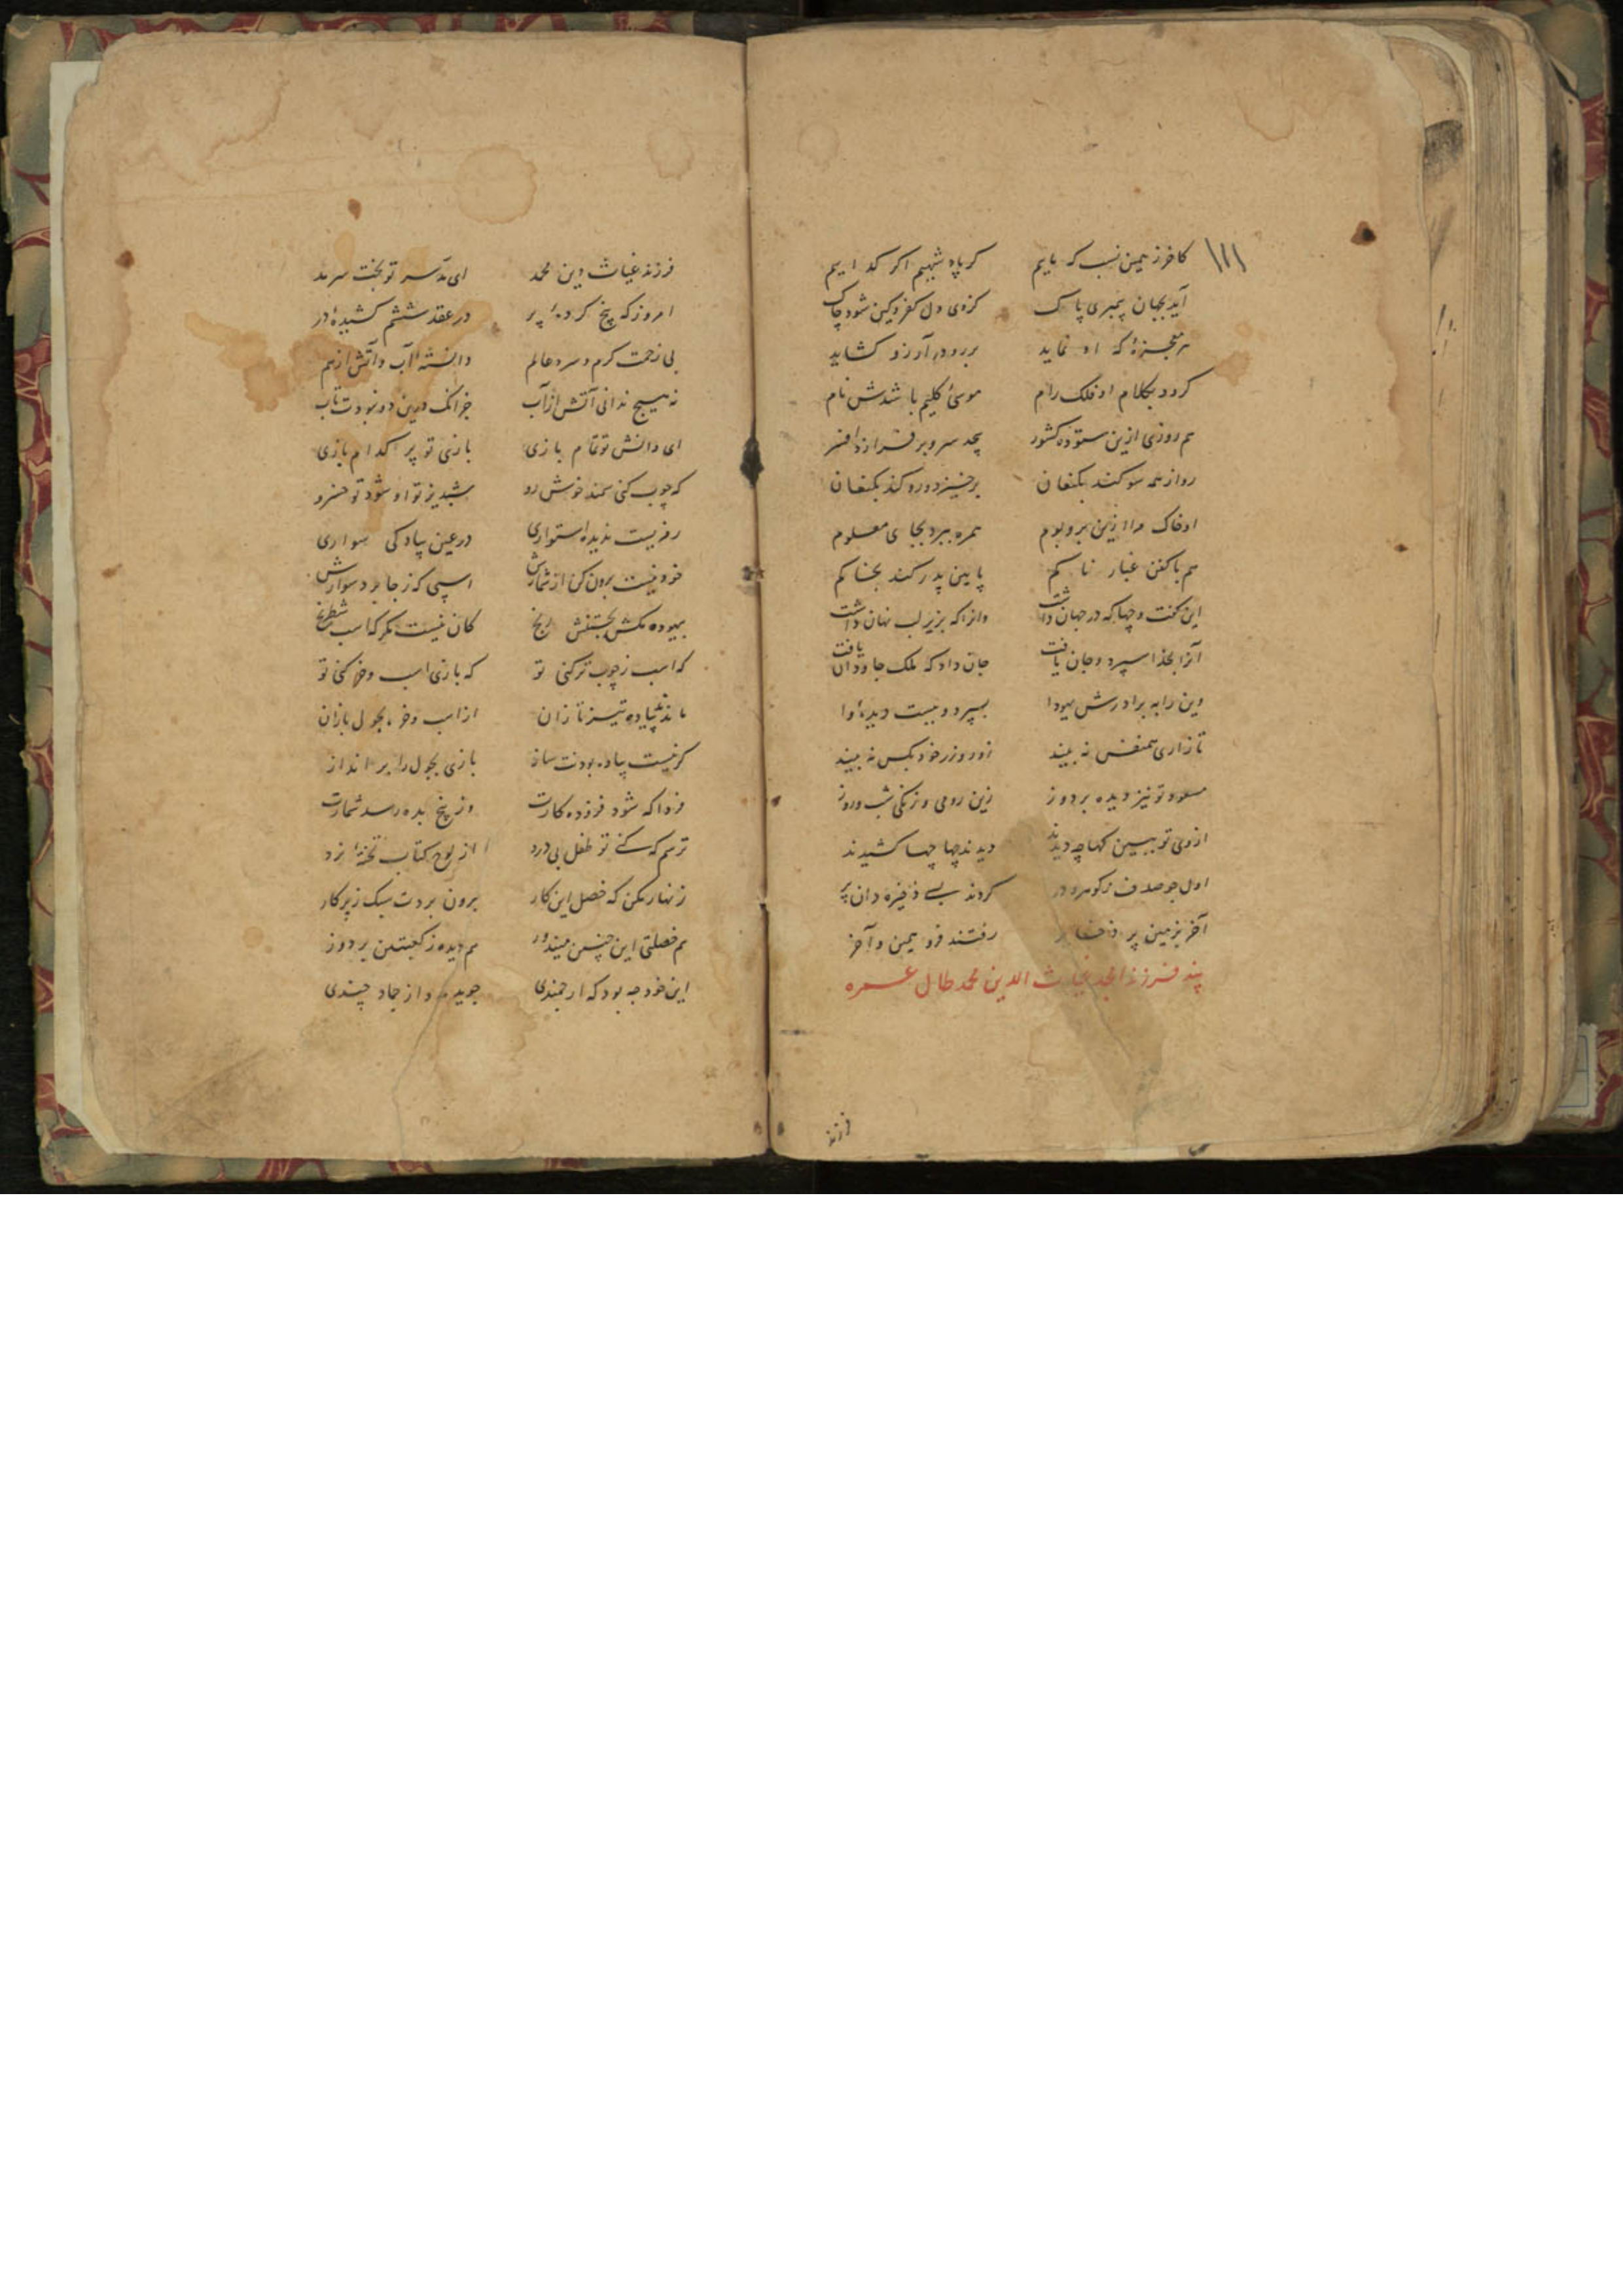 ۱۱۱
کاخر ز همین نسب که مایم گر پادشهیم اگر گداییم
آید بجهان پیمبری پاک کز وی دل کفر و کین شود چاک
هر معجزهٔ که او نماید بر رو در آرزو کشاید
گردد بکلام او فلک رام موسیٔ کلیم باشدش نام
هم روزی ازین ستوده کشور بر فرازد افسر
برخیزد و ره کند بکنعان
او خاک مرا ازین بر و بوم همره ببرد بجای معلوم
هم با کفن غبار ناکم پایین پدر کند بخاکم
این گفت و چها که در جهان داشت وانرا که بزیر لب نهان داشت
آنرا بخدا سپرد و جان یافت جان داد که ملک جاودان یافت
وین را به برادرش یهودا بسپرد و ببست دیده
تا زاری همنفس نه بیند روز خود بکس نه بیند
مسعود تو نیز دیده بردوز زین رومی و زنگی شب و روز
ازوی تو ببین کهها چه دیدند دیدند چها چها کشیدند
اول چو صدف ز گوهر و در کردند بسے ذخیره دان پر
آخر بزمین پر رفتند فرو همین و آخر
پند فرزند امجد غیاث الدین محمد طال عمره
فرزند
فرزند غیاث دین محمد ای بر سر تو بخت سرمد
امروز که پنج کردهٔ پر در عقد ششم کشیدهٔ در
بی زحمت گرم و سرد عالم دانستهٔ آب و آتش از هم
نه هیچ ندانی آتش از آب جز آنک درین دو نبودت تاب
ای دانش تو تمام بازی بازی تو پر کدام بازی
که چوب کنی سمند خوش رو شبدیز تو او شود تو خسرو
ندیده استواری در عین پیادگی سواری
خود نیست برون کن از شمارش اسپی که ز جا برد سوارش
بیهوده مکش بجستنش رنج کان نیست مگر که اسب شطرنج
که اسب ز چوب تر کنی تو که بازی اسب و خر کنی تو
مانند پیاده تیز تازان از اسب و خر بجول بازان
گر نیست پیاده بودنت ساز بازی بجول را بر انداز
فردا که شود فزوده کارت وز پنج بده رسد شمارت
ترسم که کنے تو طفل بی درد از لوح کتاب تختهٔ نرد
زنهار مکن که فصل این کار برون بردت سبک ز پرکار
هم فصلتی این چنین میندوز هم دیده ز کعبتین بردوز
این خود چه بود که ارجمندی جوید از جماد چندی